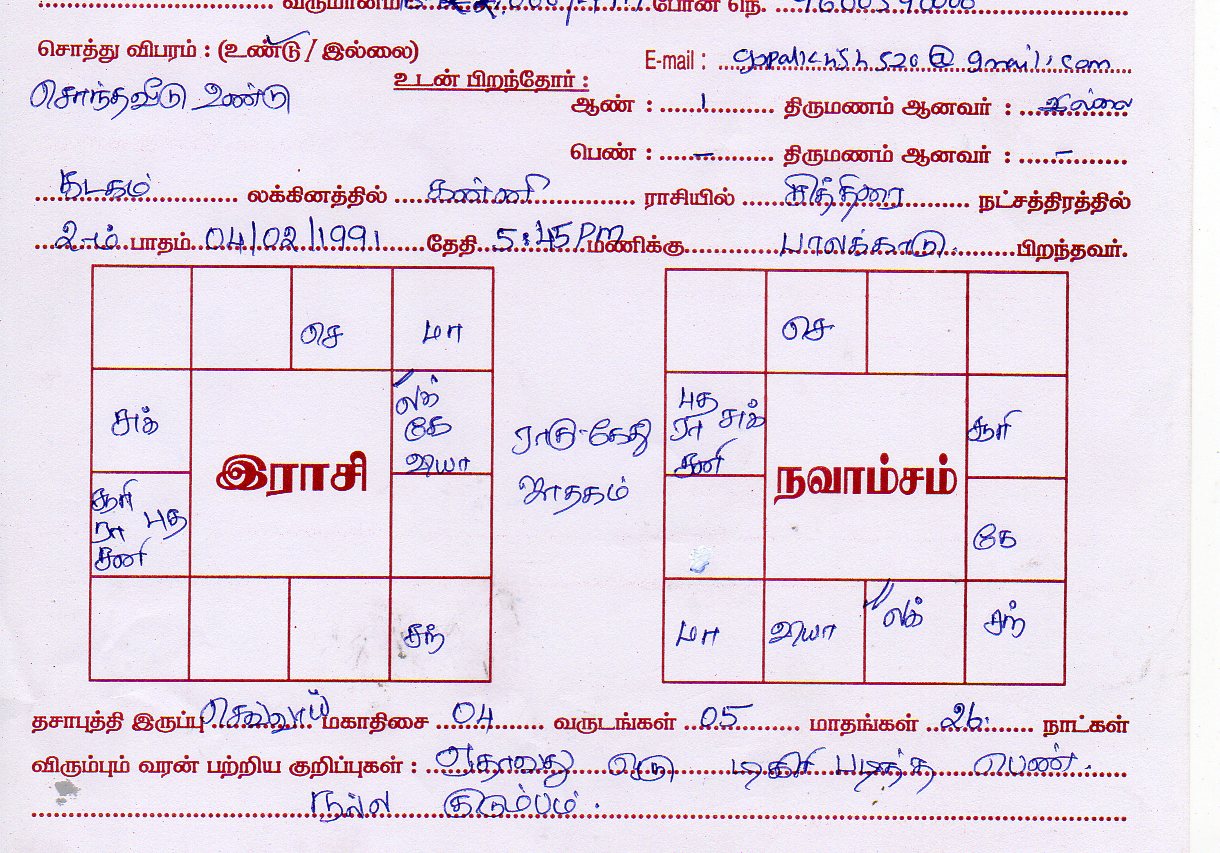 வருமானம் போன் நெ.
சொத்து விபரம் : (உண்டு / இல்லை)
E-mail : gopalkrish520@gmail.com
சொந்தவீடு உண்டு
உடன் பிறந்தோர் :
ஆண் : 1 திருமணம் ஆனவர் : இல்லை
பெண் : – திருமணம் ஆனவர் : –
கடகம் லக்கினத்தில் கன்னி ராசியில் சித்திரை நட்சத்திரத்தில்
2-ம் பாதம் 04/02/1991 தேதி 5:45 PM மணிக்கு பாலக்காடு பிறந்தவர்.
செ மா
சுக்
லக்
கே
வியா
இராசி
சூரி
ரா புத
சனி
சந்
ராகு-கேது
ஜாதகம்
செ
புத
ரா சுக்
சனி
சூரி
நவாம்சம்
கே
மா வியா லக் சந்
தசாபுத்தி இருப்பு செவ்வாய் மகாதிசை 04 வருடங்கள் 05 மாதங்கள் 26 நாட்கள்
விரும்பும் வரன் பற்றிய குறிப்புகள் : ஏதாவது ஒரு டிகிரி படித்த பெண்.
நல்ல குடும்பம்.